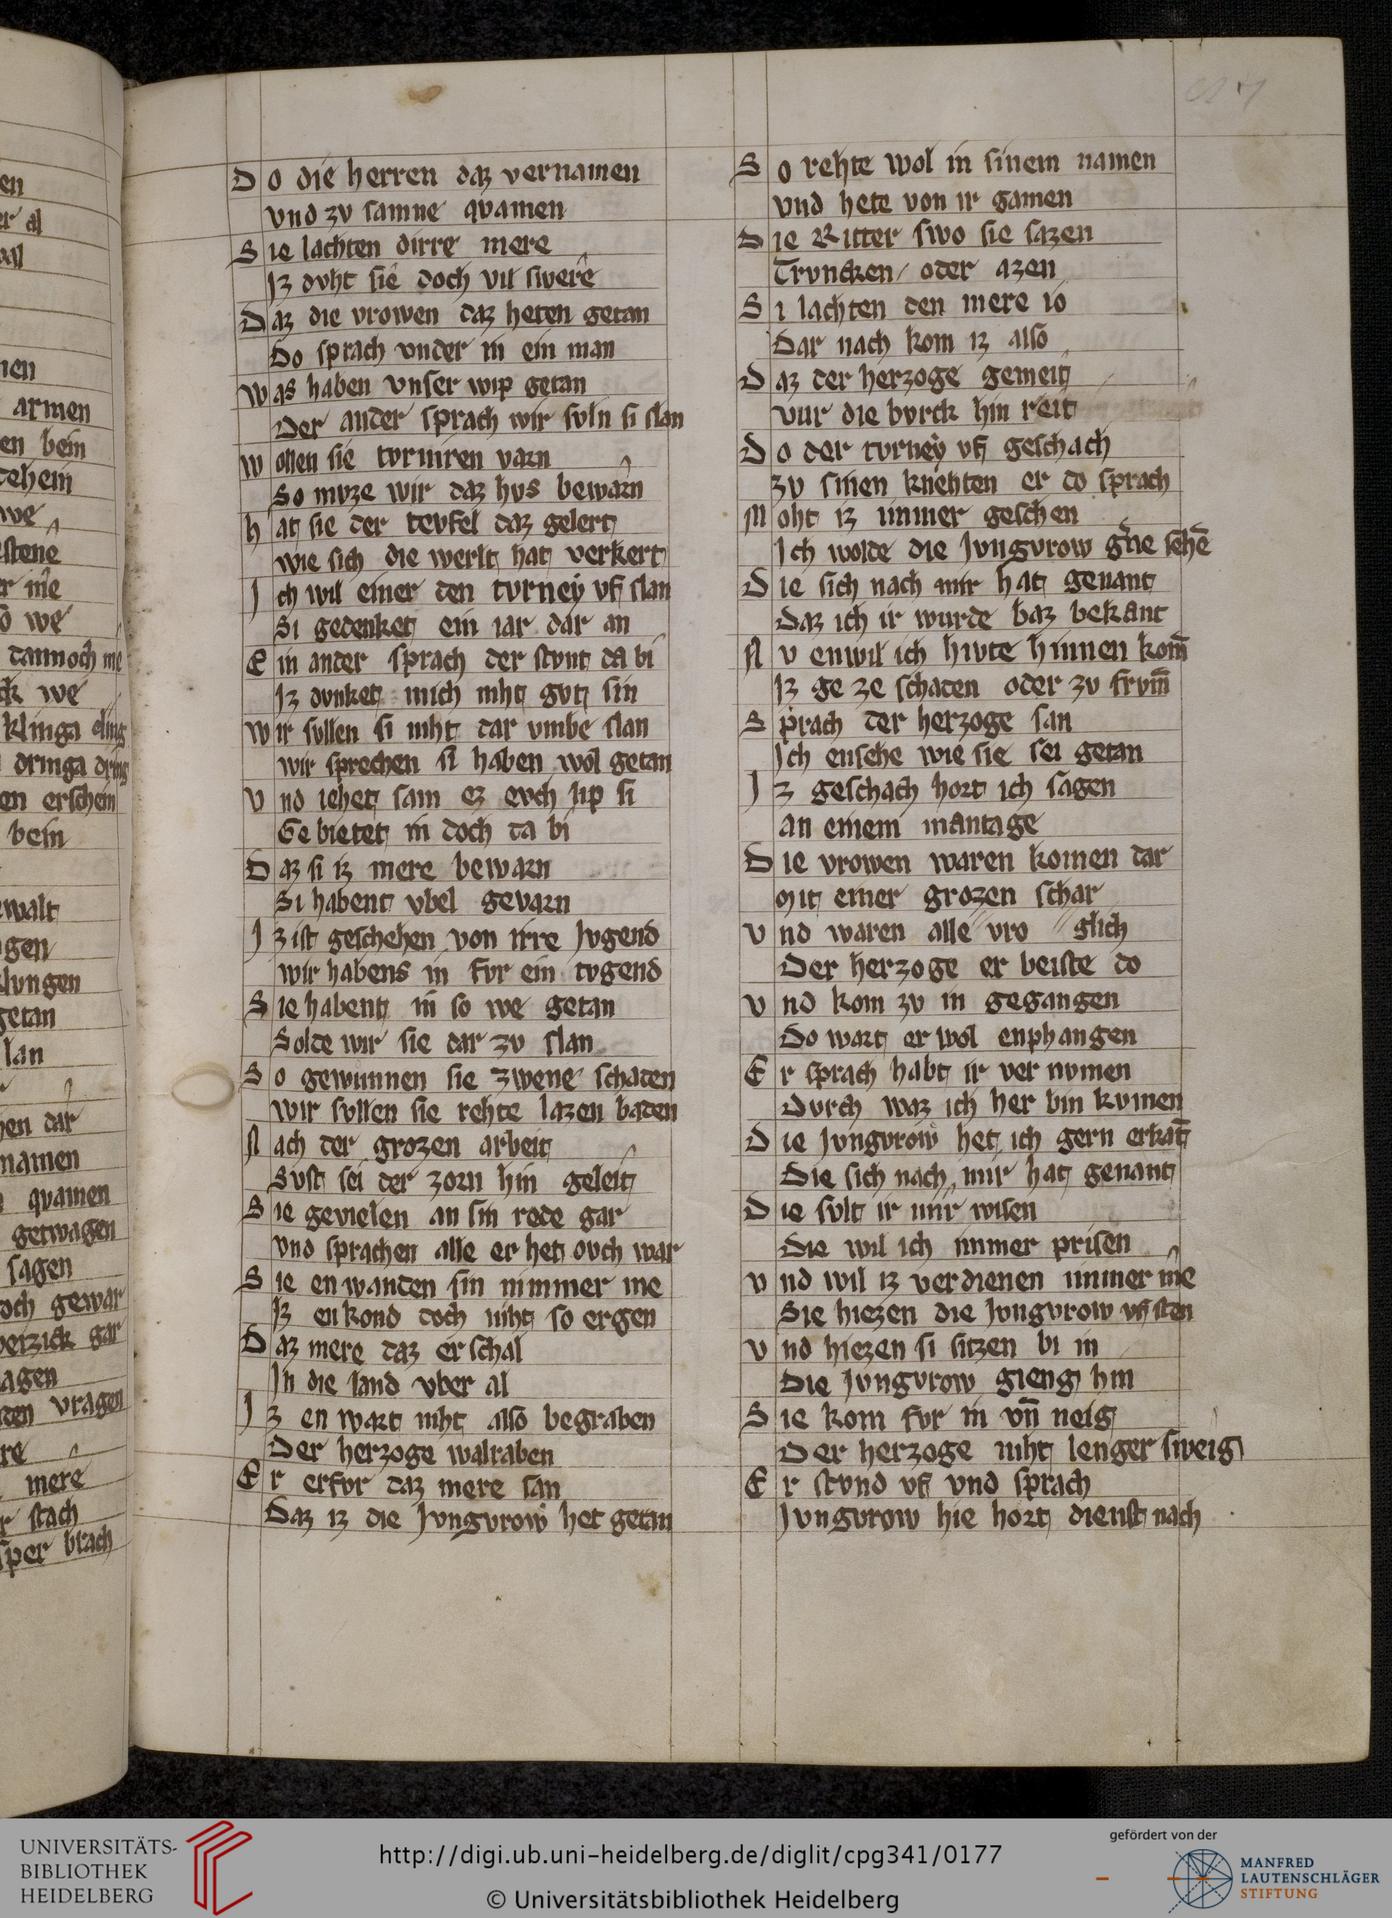 Do die herren daz vernamen
vnd zv samne qvamen
Sie lachten dirre mere
Jz dvht sie doch vil swere
Daz die vrowen daz heten getan
Do sprach vnder in ein man
was haben vnser wip getan
Der ander sprach wir svln si slan
wollen sie tvrniren varn
So mvze wir daz hvs bewarn
hat sie der tevfel daz gelert
wie sich die werlt hat verkert
Jch wil einer den tvrney vf slan
Si gedenket ein iar dar an
Ein ander sprach der stvnt da bi
Jz dvnket mich niht gvt sin
wir svllen si niht dar vmbe slan
wir sprechen si haben wol getan
vnd iehet sam ez evch lip si
Gebietet in doch da bi
Daz si iz mere bewarn
Si habent vbel gevarn
Jz ist geschehen von irre Jvgend
wir habens in fvr ein tvgend
Sie habent in so we getan
Solde wir sie dar zv slan
So gewunnen sie zwene schaden
wir svllen sie rehte lazen baden
Nach der grozen arbeit
Svst sei der zorn hin geleit
Sie gevielen an sin rede gar
vnd sprachen alle er het ovch war
Sie enwanden sin nimmer me
Jz enkond doch niht so ergen
Daz mere daz erschal
Jn die land vber al
Jz enwart niht also begraben
Der herzoge walraben
Er erfvr daz mere san
Daz iz die Jvngvrow het getan
So rehte wol in sinem namen
vnd hete von ir gamen
Die Ritter swo sie sazen
Trvncken/ oder azen
Si lachten den mere io
Dar nach kom iz also
Daz der herzoge gemeit
vur die bvrck hin reit
Do der tvrney vf geschach
zv sinen knehten er do sprach
Moht iz immer geschen
Jch wolde die Jvngvrow gˀne sehē
Die sich nach mir hat genant
Daz ich ir wurde baz bekant
Nv enwil ich hivte hinnen kom̄
Jz ge ze schaden oder zv frvm̄
Sprach der herzoge san
Jch ensehe wie sie sei getan
Jz geschach hort ich sagen
an einem mantage
Die vrowen waren komen dar
mit einer grozen schar
vnd waren alle vro glich
Der herzoge er beiste do
vnd kom zv in gegangen
Do wart er wol enphangen
Er sprach habt ir ver nvmen
Dvrch waz ich her bin kvmen
Die Jvngvrow het ich gern erkāt
Die sich nach mir hat genant
Die svlt ir mir wisen
Die wil ich immer prisen
vnd wil iz verdienen immer me
Sie hiezen die Jvngvrow vf sten
vnd hiezen si sitzen bi in
Die Jvngvrow gieng hin
Sie kom fvr in vn̄ neig
Der herzoge niht lenger sweig
Er stvnd vf vnd sprach
Jvngvrow hie hort dienst nach
UNIVERSITÄTS-
BIBLIOTHEK
HEIDELBERG
http://digi.ub.uni-heidelberg.de/diglit/cpg341/0177
© Universitätsbibliothek Heidelberg
gefördert von der
MANFRED
LAUTENSCHLÄGER
STIFTUNG